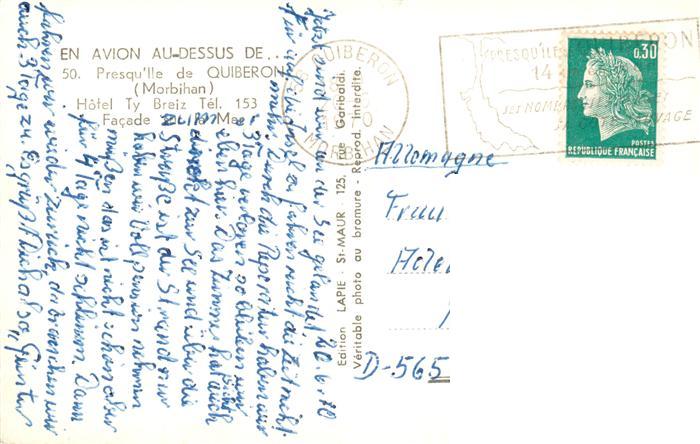 EN AVION AU-DESSUS DE...
50. Presqu'Ile de QUIBERON
(Morbihan)
Hôtel Ty Breiz Tél. 153
Façade Mer
Edition LAPIE - St-MAUR - 125, rue Garibaldi.
Véritable photo au bromure - Reprod. Interdite.
QUIBERON
MORBIHAN
PRESQU'ILE QUIBERON
14
SES NOMB
SA SAUVAGE
0,30
POSTES
REPUBLIQUE FRANÇAISE
Allemagne
Frau
D-565
Jetzt sind wir an der See gelandet 20.6.70
Für uns bis zu fahren reicht die Zeit nicht
mehr. Durch die Reparatur haben wir
3 Tage verloren so bleiben wir
eben hier. Das Zimmer hat auch
direkt zur See und über die
Straße ist der Strand nur
haben wir Vollpension nehmen
müßen das ist nicht schön aber
für 4 Tage nicht schlimm. Dann
fahren wir wieder zurück, da brauchen wir
auch 3 Tage zu. Es grüßt Dich also Günter